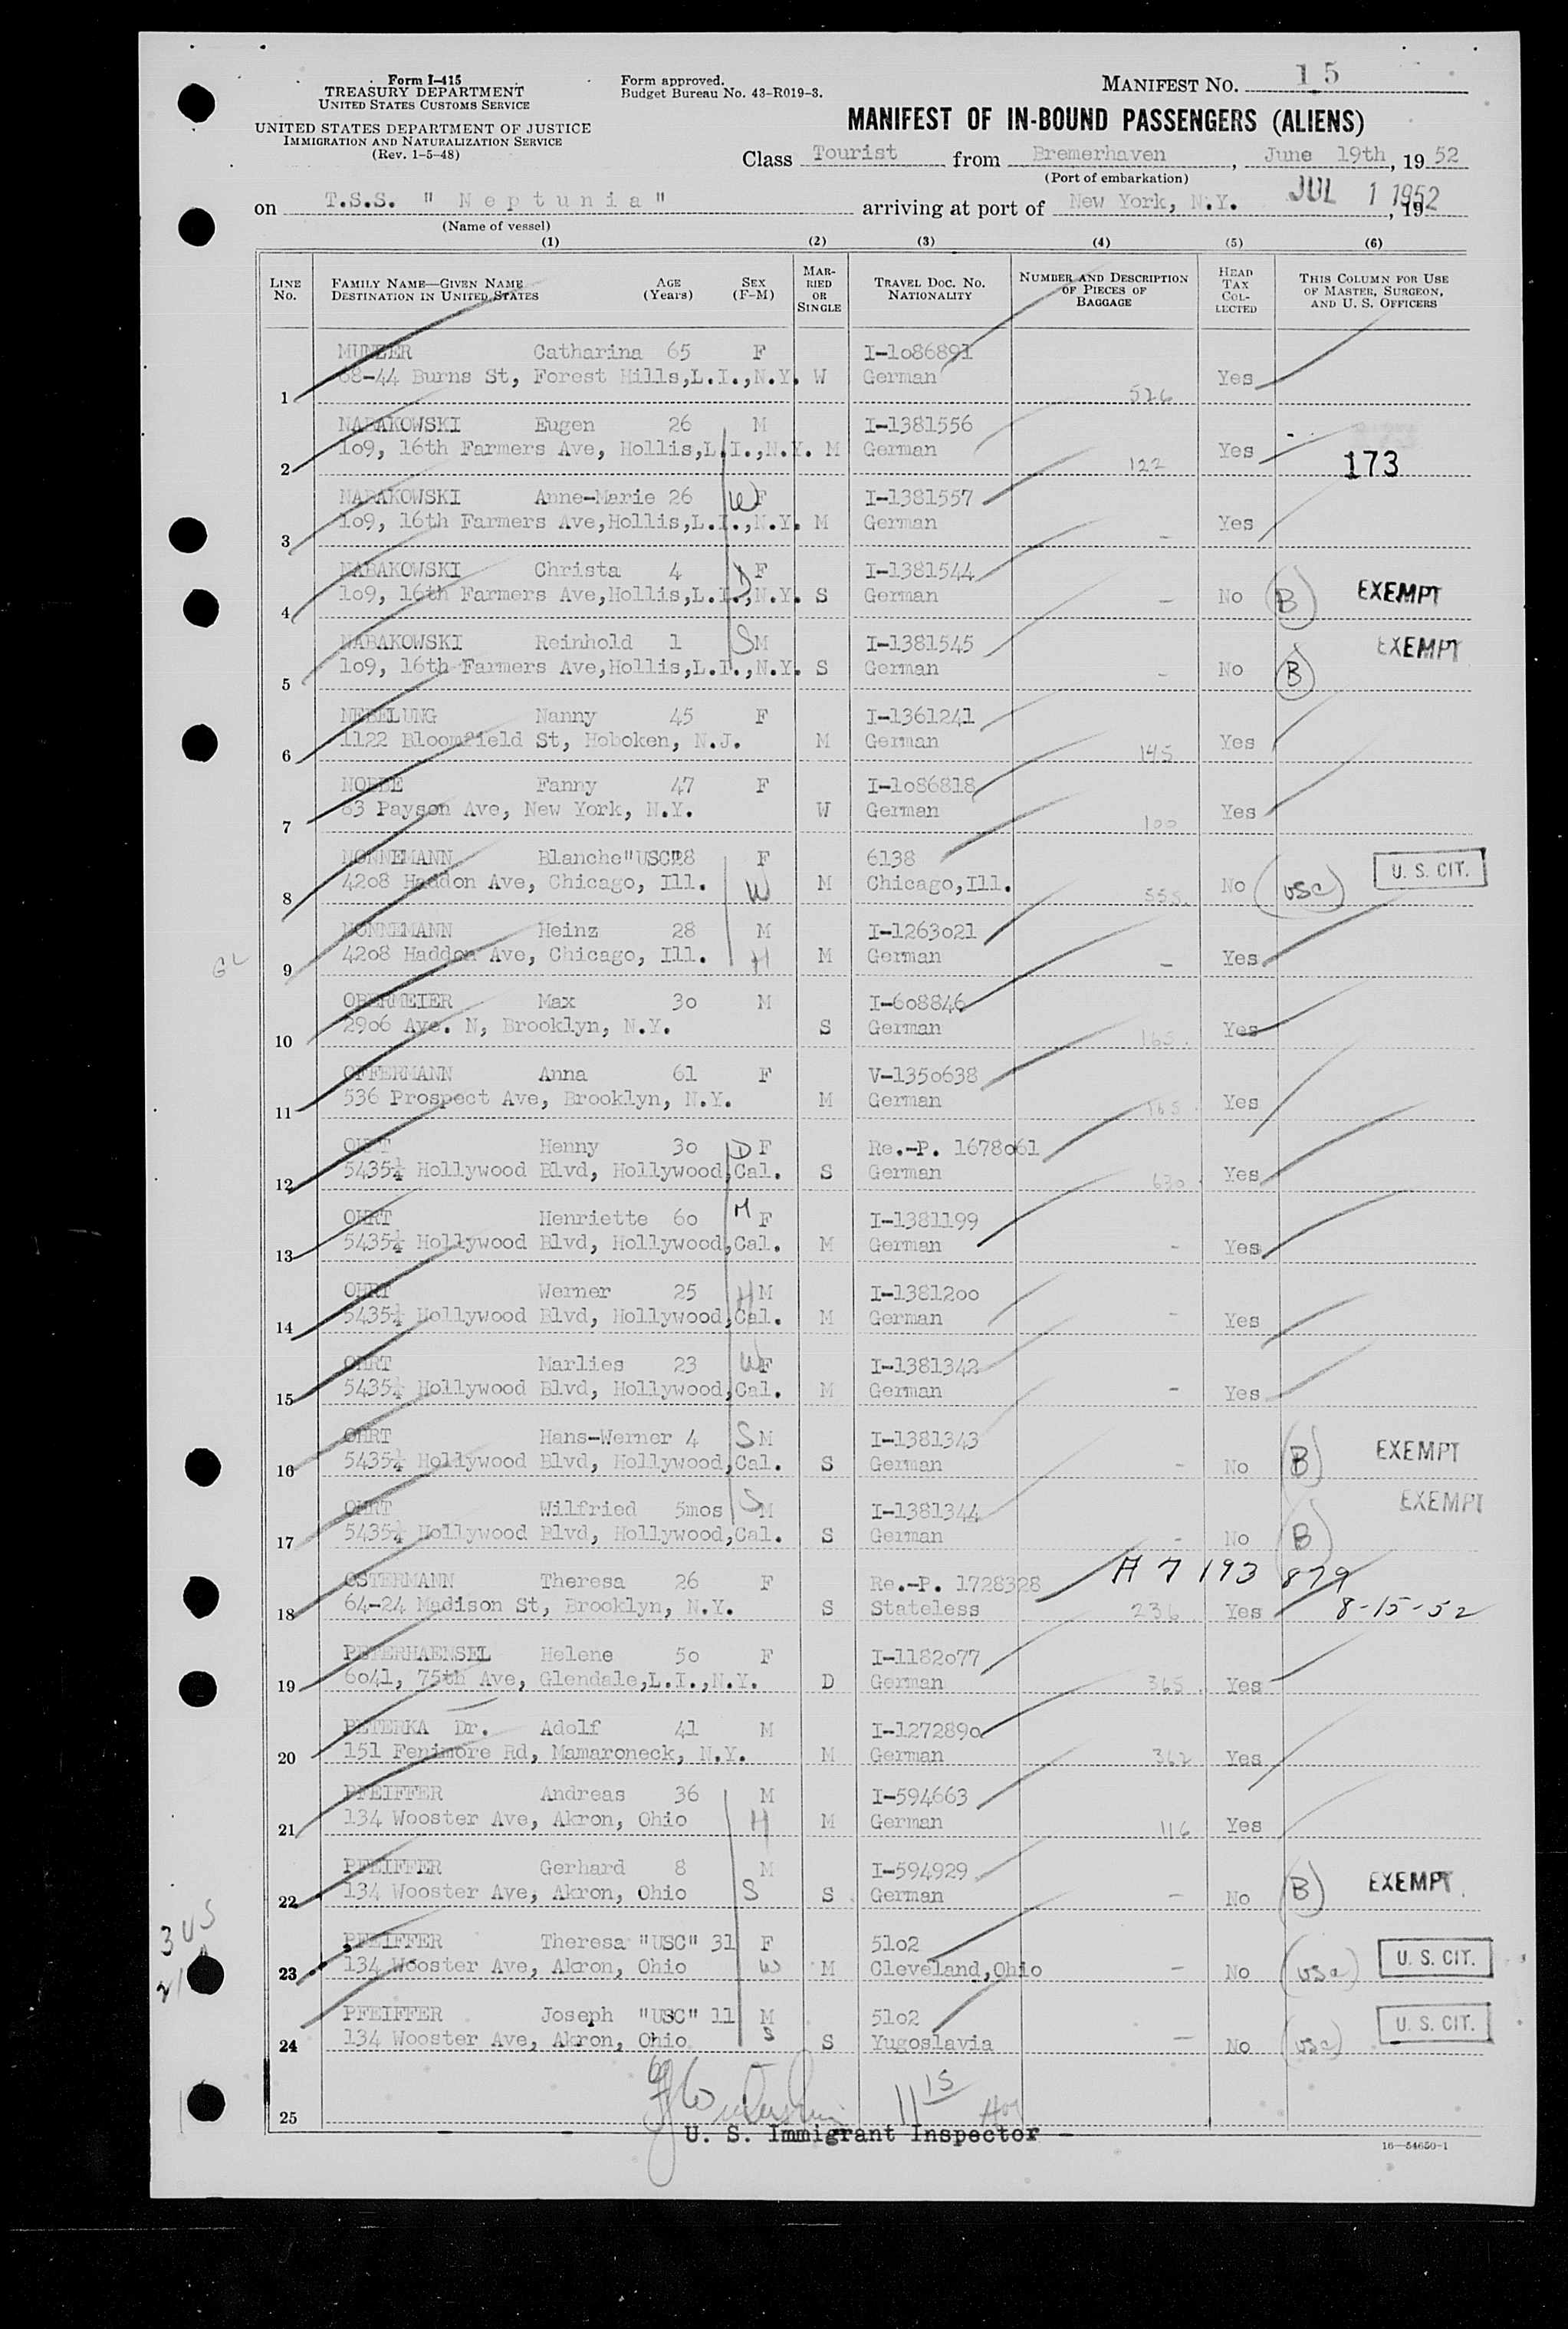 Form I-415
TREASURY DEPARTMENT
UNITED STATES CUSTOMS SERVICE
UNITED STATES DEPARTMENT OF JUSTICE
IMMIGRATION AND NATURALIZATION SERVICE
(Rev. 1-5-48)
Form approved.
Budget Bureau No. 43-R019-3.
MANIFEST NO. 15
MANIFEST OF IN-BOUND PASSENGERS (ALIENS)
Class Tourist from Bremerhaven, June 19th, 1952
(Port of embarkation)
on T.S.S. " Neptunia " arriving at port of New York, N.Y. JUL 1 1952, 19
(Name of vessel)
(1) (2) (3) (4) (5) (6)
LINE NO. FAMILY NAME—GIVEN NAME DESTINATION IN UNITED STATES AGE (Years) SEX (F-M) MARRIED OR SINGLE TRAVEL DOC. NO. NATIONALITY NUMBER AND DESCRIPTION OF PIECES OF BAGGAGE HEAD TAX COLLECTED THIS COLUMN FOR USE OF MASTER, SURGEON, AND U. S. OFFICERS
Catharina 65 F I-1o86891
1 68-44 Burns St, Forest Hills,L.I.,N.Y. W German 526 Yes
NABAKOWSKI Eugen 26 M I-1381556
2 1o9, 16th Farmers Ave, Hollis,L.I.,N.Y. M German 122 Yes 173
NABAKOWSKI Anne-Marie 26 W F I-1381557
3 1o9, 16th Farmers Ave,Hollis,L.I.,N.Y. M German - Yes
NABAKOWSKI Christa 4 D F I-1381544
4 1o9, 16th Farmers Ave,Hollis,L.I.,N.Y. S German - No B EXEMPT
NABAKOWSKI Reinhold 1 S M I-1381545
5 1o9, 16th Farmers Ave,Hollis,L.I.,N.Y. S German - No B EXEMPT
NEBELUNG Nanny 45 F I-1361241
6 1122 Bloomfield St, Hoboken, N.J. M German 145 Yes
Fanny 47 F I-1o86818
7 83 Payson Ave, New York, N.Y. W German 100 Yes
NONNEMANN Blanche"USC"28 F 6138
8 42o8 Haddon Ave, Chicago, Ill. W M Chicago,Ill. 555. No USC U. S. CIT.
NONNEMANN Heinz 28 M I-1263o21
9 42o8 Haddon Ave, Chicago, Ill. H M German - Yes
OBERMEIER Max 3o M I-6o8846
10 29o6 Ave. N, Brooklyn, N.Y. S German 165. Yes
OFFERMANN Anna 61 F V-135o638
11 536 Prospect Ave, Brooklyn, N.Y. M German 165. Yes
OHRT Henny 3o D F Re.-P. 1678o61
12 5435¼ Hollywood Blvd, Hollywood,Cal. S German 630. Yes
OHRT Henriette 6o M F I-1381199
13 5435¼ Hollywood Blvd, Hollywood,Cal. M German - Yes
OHRT Werner 25 H M I-13812oo
14 5435¼ Hollywood Blvd, Hollywood,Cal. M German - Yes
OHRT Marlies 23 W F I-1381342
15 5435¼ Hollywood Blvd, Hollywood,Cal. M German - Yes
OHRT Hans-Werner 4 S M I-1381343
16 5435¼ Hollywood Blvd, Hollywood,Cal. S German - No B EXEMPT
OHRT Wilfried 5mos S M I-1381344
17 5435¼ Hollywood Blvd, Hollywood,Cal. S German - No B EXEMPT
OSTERMANN Theresa 26 F Re.-P. 1728328 A 7 193 879
18 64-24 Madison St, Brooklyn, N.Y. S Stateless 236. Yes 8-15-52
PETERHAENSEL Helene 5o F I-1182o77
19 6o41, 75th Ave, Glendale,L.I.,N.Y. D German 365. Yes
PETERKA Dr. Adolf 41 M I-127289o
20 151 Fenimore Rd, Mamaroneck, N.Y. M German 362 Yes
PFEIFFER Andreas 36 M I-594663
21 134 Wooster Ave, Akron, Ohio H M German 116 Yes
PFEIFFER Gerhard 8 M I-594929
22 134 Wooster Ave, Akron, Ohio S S German - No B EXEMPT
PFEIFFER Theresa "USC" 31 F 51o2
23 134 Wooster Ave, Akron, Ohio W M Cleveland,Ohio - No USC U. S. CIT.
PFEIFFER Joseph "USC" 11 M 51o2
24 134 Wooster Ave, Akron, Ohio S S Yugoslavia - No USC U. S. CIT.
3 US
21
11 15
25
U. S. Immigrant Inspector
16—54650-1